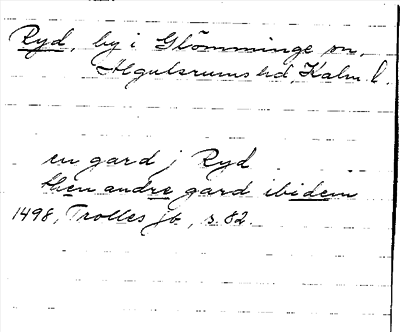 Ryd, by i Glömminge sn,
Algutsrums hd, Kalm. l.
en gard j Ryd
then andre gard ibidem
1498, Trolles Jb, s. 82.